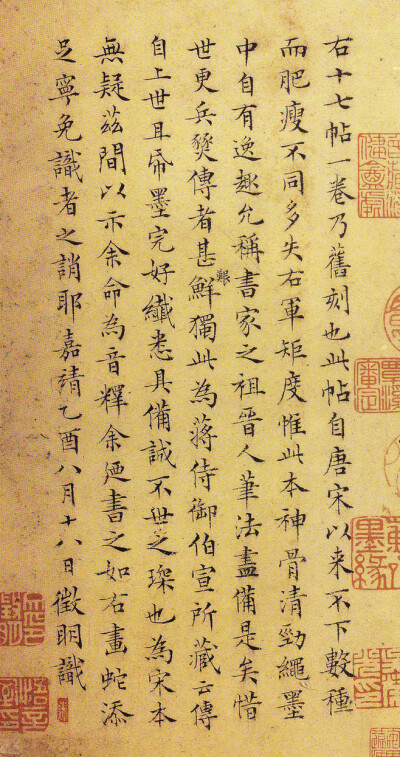 右十七帖一卷乃舊刻也此帖自唐宋以來不下數種
而肥瘦不同多失右軍矩度惟此本神骨清勁繩墨
中自有逸趣允稱書家之祖晉人筆法盡備是矣惜
世更兵燹傳者甚鮮獨此為蔣侍御伯宣所藏云傳
自上世且帋墨完好纖悉具備誠不世之琛也為宋本
無疑茲間以示余命為音釋余廼書之如右畫蛇添
足寧免識者之誚耶嘉靖乙酉八月十八日徵明識
墨緣